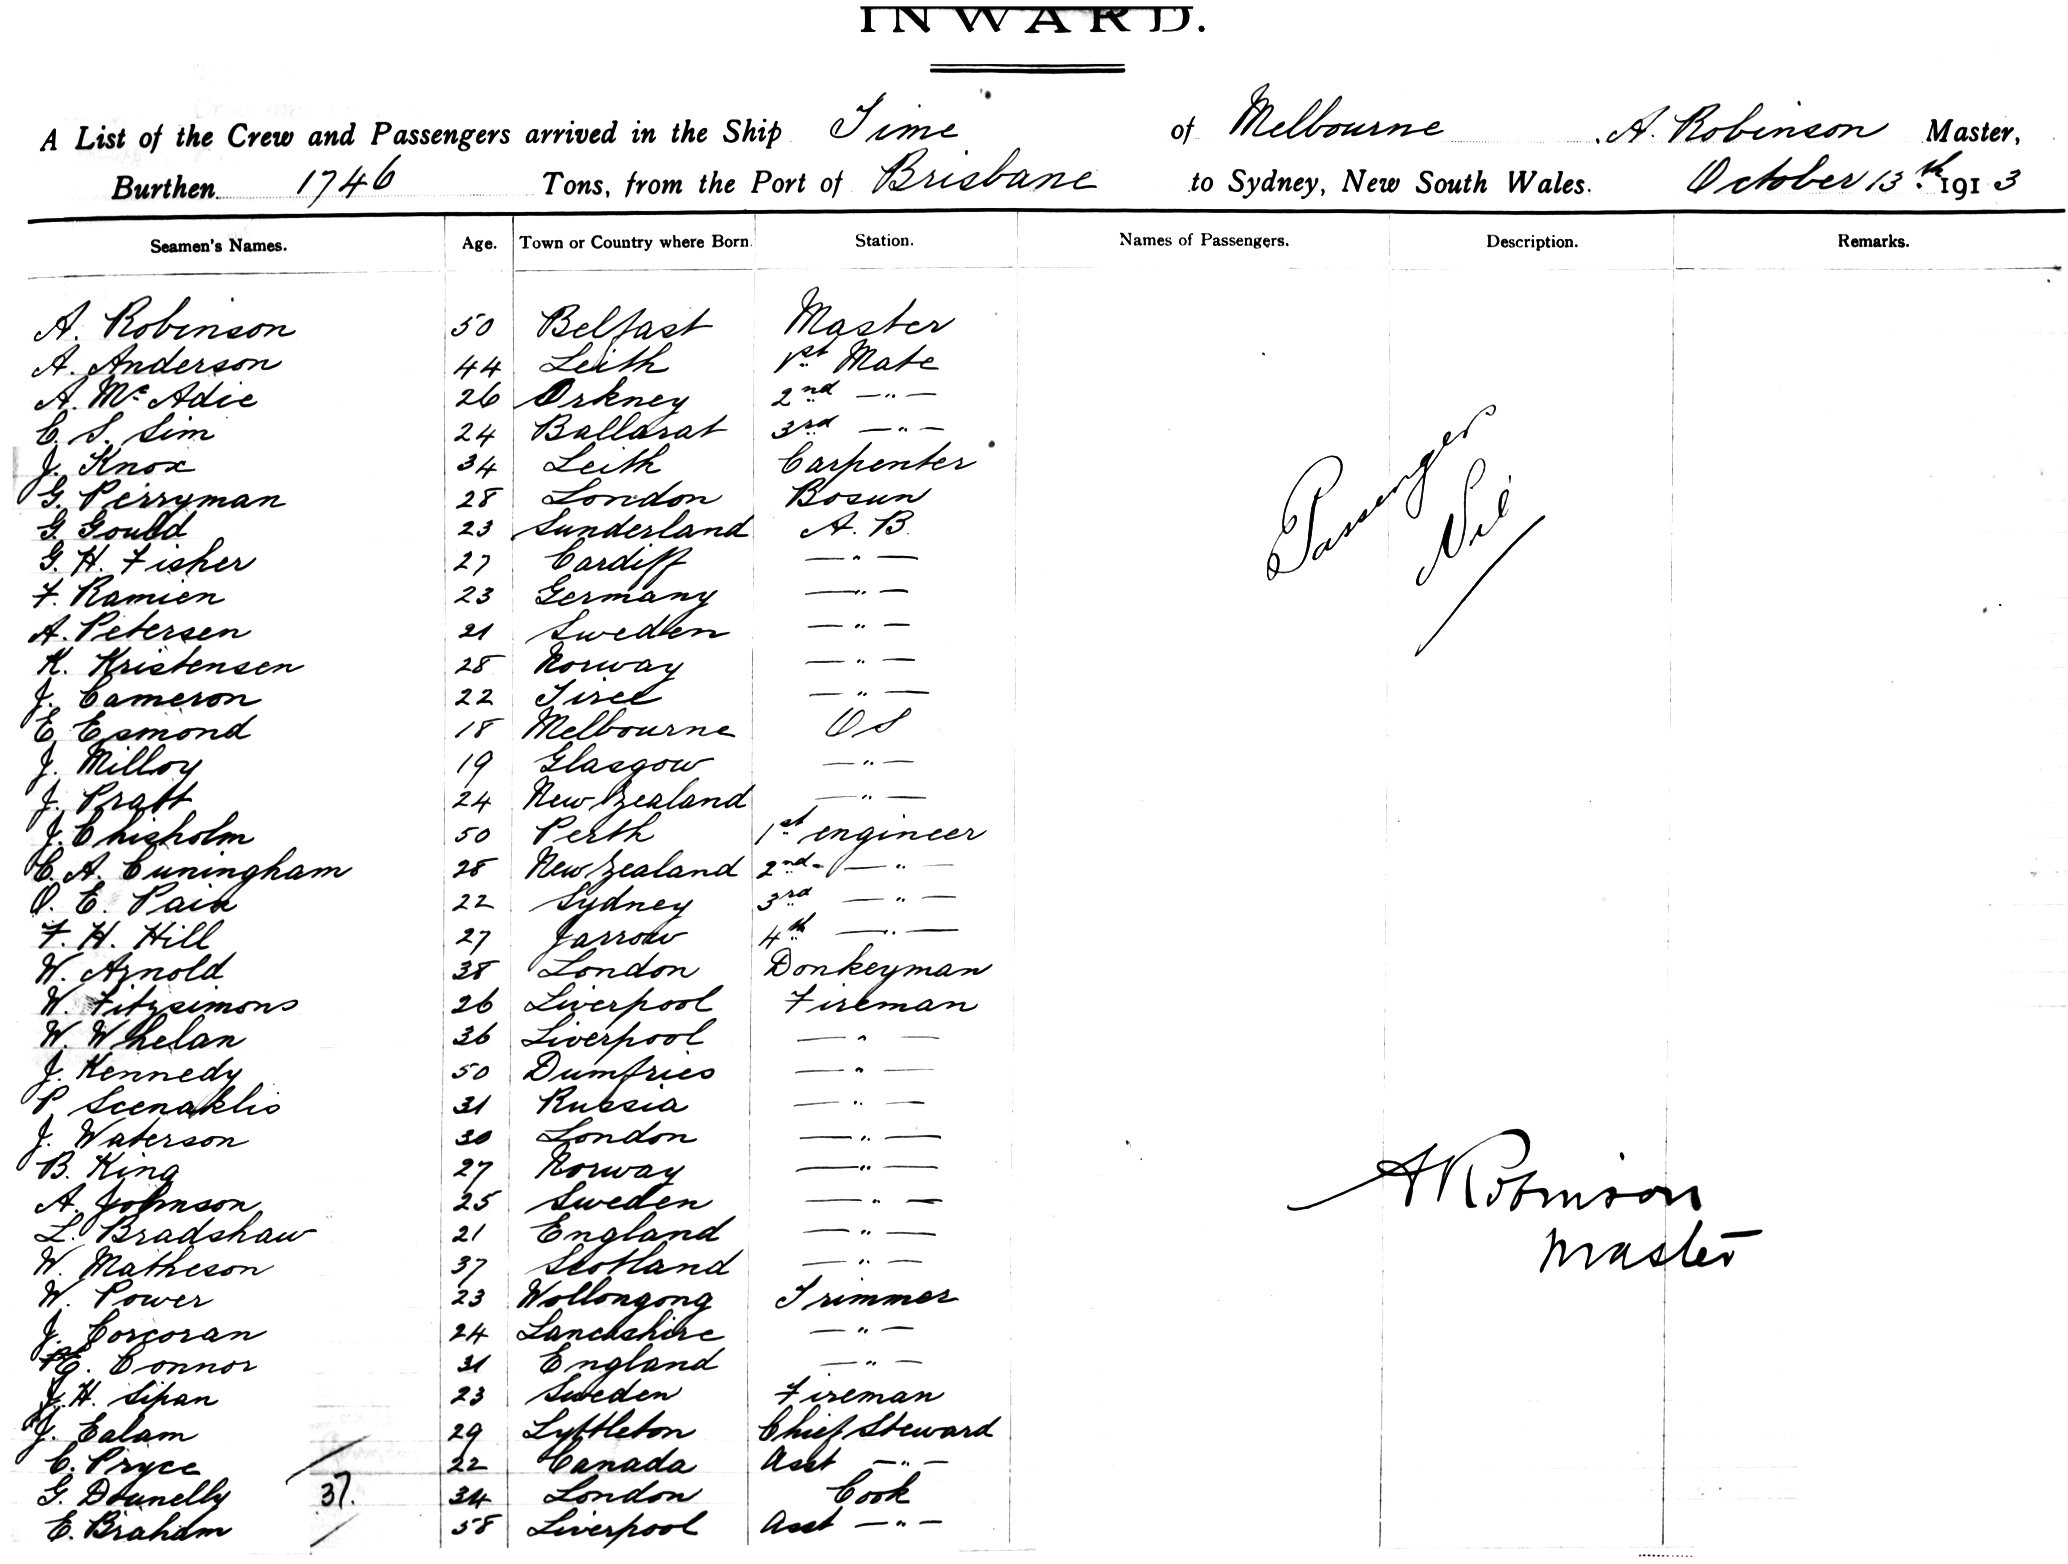 INWARD.
A List of the Crew and Passengers arrived in the Ship Time of Melbourne, A. Robinson Master,
Burthen 1746 Tons, from the Port of Brisbane to Sydney, New South Wales. October 13th 1913
Seamen's Names. Age. Town or Country where Born. Station. Names of Passengers. Description. Remarks.
A. Robinson 50 Belfast Master
A. Anderson 44 Leith 1st Mate
A. Mc Adie 26 Orkney 2nd —"—
C. S. Sim 24 Ballarat 3rd —"—
J. Knox 34 Leith Carpenter
G. Perryman 28 London Bosun
G. Gould 23 Sunderland A. B.
G. H. Fisher 27 Cardiff —"—
F. Ramien 23 Germany —"—
A. Petersen 21 Sweden —"—
K. Kristensen 28 Norway —"—
J. Cameron 22 Tiree —"—
E Esmond 18 Melbourne O S
J. Milloy 19 Glasgow —"—
J. Pratt 24 New Zealand —"—
J. Chisholm 50 Perth 1st engineer
C. A. Cuningham 28 New Zealand 2nd —"—
O. E. Pain 22 Sydney 3rd —"—
F. H. Hill 27 Jarrow 4th —"—
W. Arnold 38 London Donkeyman
W. Fitzsimons 26 Liverpool Fireman
W. Whelan 36 Liverpool —"—
J. Kennedy 50 Dumfries —"—
P. Scenaklis 31 Russia —"—
J. Waterson 30 London —"—
B. King 27 Norway —"—
A. Johnson 25 Sweden —"—
L. Bradshaw 21 England —"—
W. Matheson 37 Scotland —"—
W. Power 23 Wollongong Trimmer
J. Corcoran 24 Lancashire —"—
C. Connor 31 England —"—
J. H. Sipan 23 Sweden Fireman
J. Ealam 29 Lyttleton Chief Steward
C. Pryce 22 Canada Asst —"—
G. Dounelly 37. 34 London Cook
E. Braham 58 Liverpool Asst —"—
Passengers
Nil
A Robinson
Master